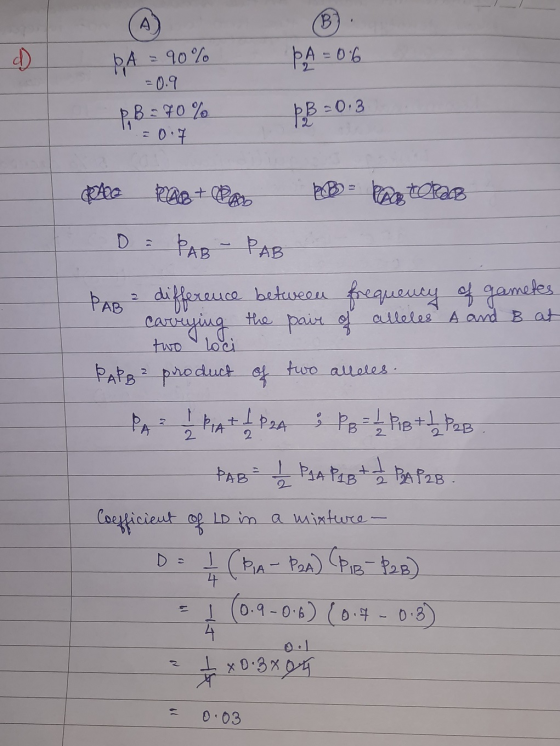 (A) (B).
d) p₁A = 90% p₂A = 0.6
= 0.9
p₁B = 70% p₂B = 0.3
= 0.7
D = pAB - pAB
pAB = difference between frequency of gametes
carrying the pair of alleles A and B at
two loci
pApB = product of two alleles.
pA = 1/2 p1A + 1/2 p2A ; pB = 1/2 p1B + 1/2 p2B.
pAB = 1/2 p1A p1B + 1/2 p2A p2B.
Coefficient of LD in a mixture —
D = 1/4 (p1A - p2A) (p1B - p2B)
= 1/4 (0.9 - 0.6) (0.7 - 0.3)
0.1
= 1/4 × 0.3 × 0.4
= 0.03